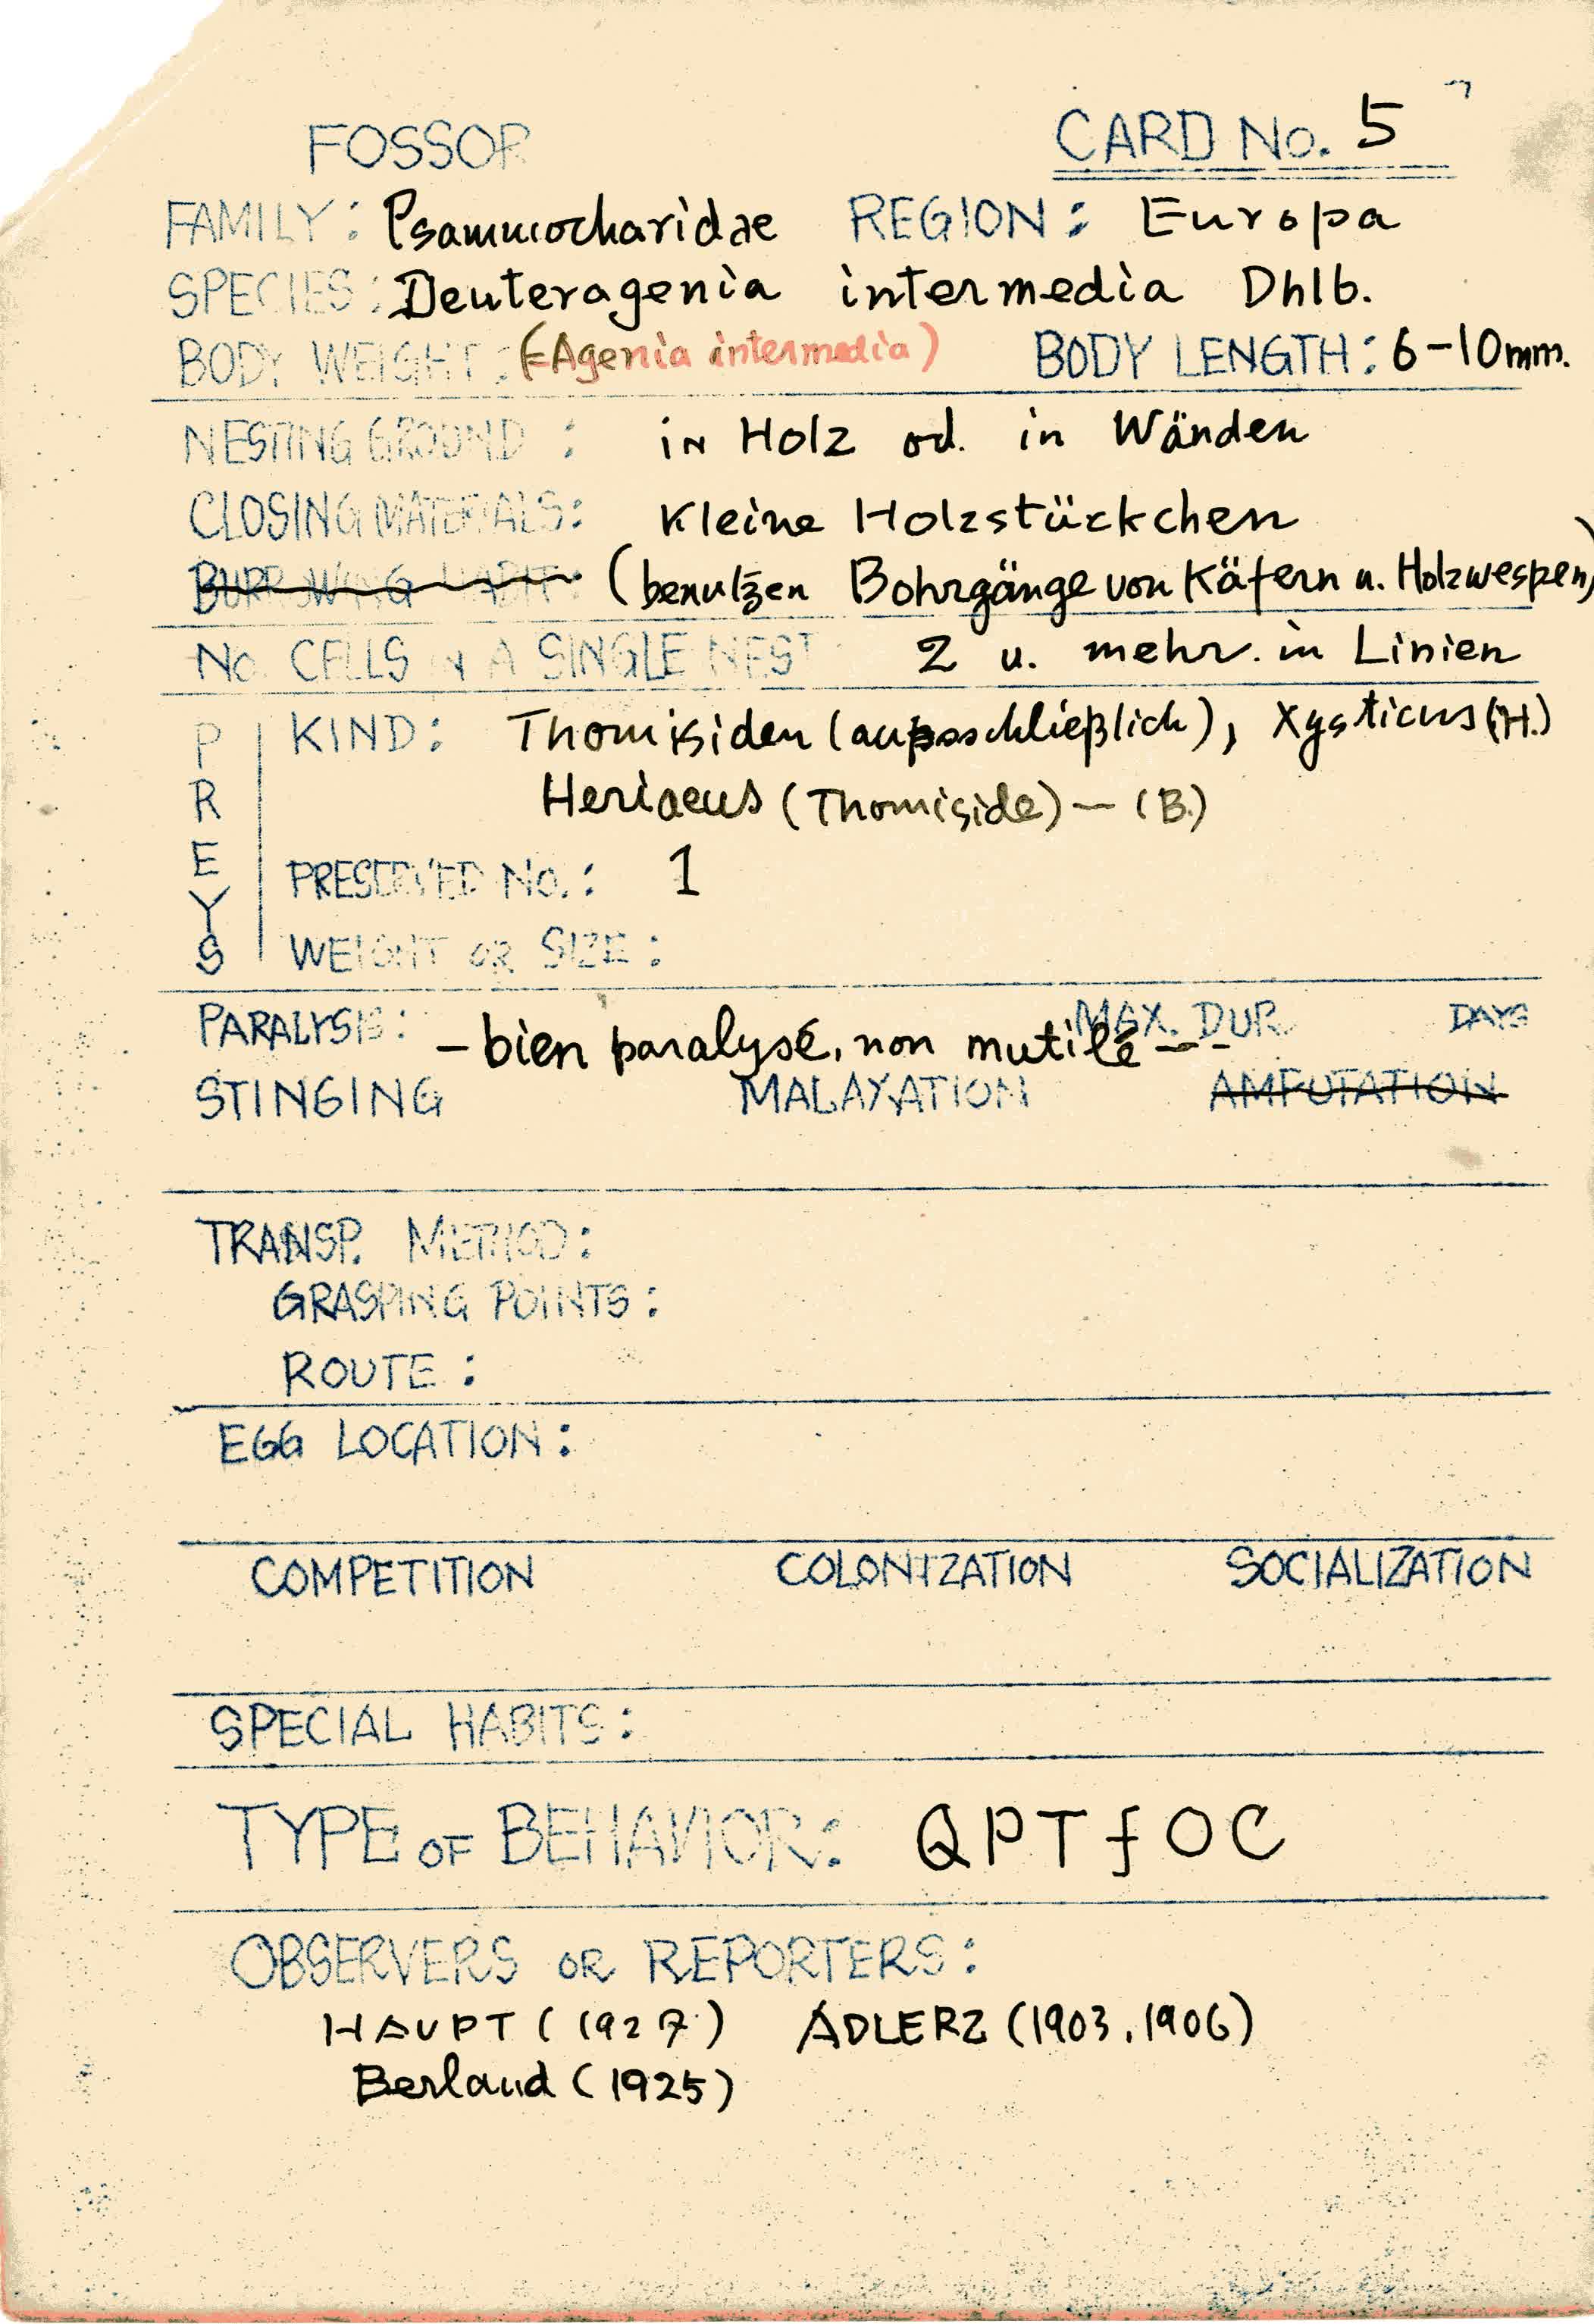 FOSSOR CARD No. 5
FAMILY: Psammocharidae REGION: Europa
SPECIES: Deuteragenia intermedia Dhlb.
BODY WEIGHT: (=Agenia intermedia) BODY LENGTH: 6-10mm.
NESTING GROUND: in Holz od. in Wänden
CLOSING MATERIALS: Kleine Holzstückchen
BURROWING HABIT: (benutzen Bohrgänge von Käfern u. Holzwespen)
No. CELLS IN A SINGLE NEST 2 u. mehr. in Linien
PREYS
KIND: Thomisiden (ausschließlich), Xysticus (H.)
Heriaeus (Thomiside) — (B.)
PRESERVED No.: 1
WEIGHT OR SIZE:
PARALYSIS: MAX. DUR. DAYS
- bien paralysé, non mutilé --
STINGING MALAXATION AMPUTATION
TRANSP. METHOD:
GRASPING POINTS:
ROUTE:
EGG LOCATION:
COMPETITION COLONIZATION SOCIALIZATION
SPECIAL HABITS:
TYPE OF BEHAVIOR: QPTfOC
OBSERVERS OR REPORTERS:
HAUPT (1927) ADLERZ (1903, 1906)
Berland (1925)